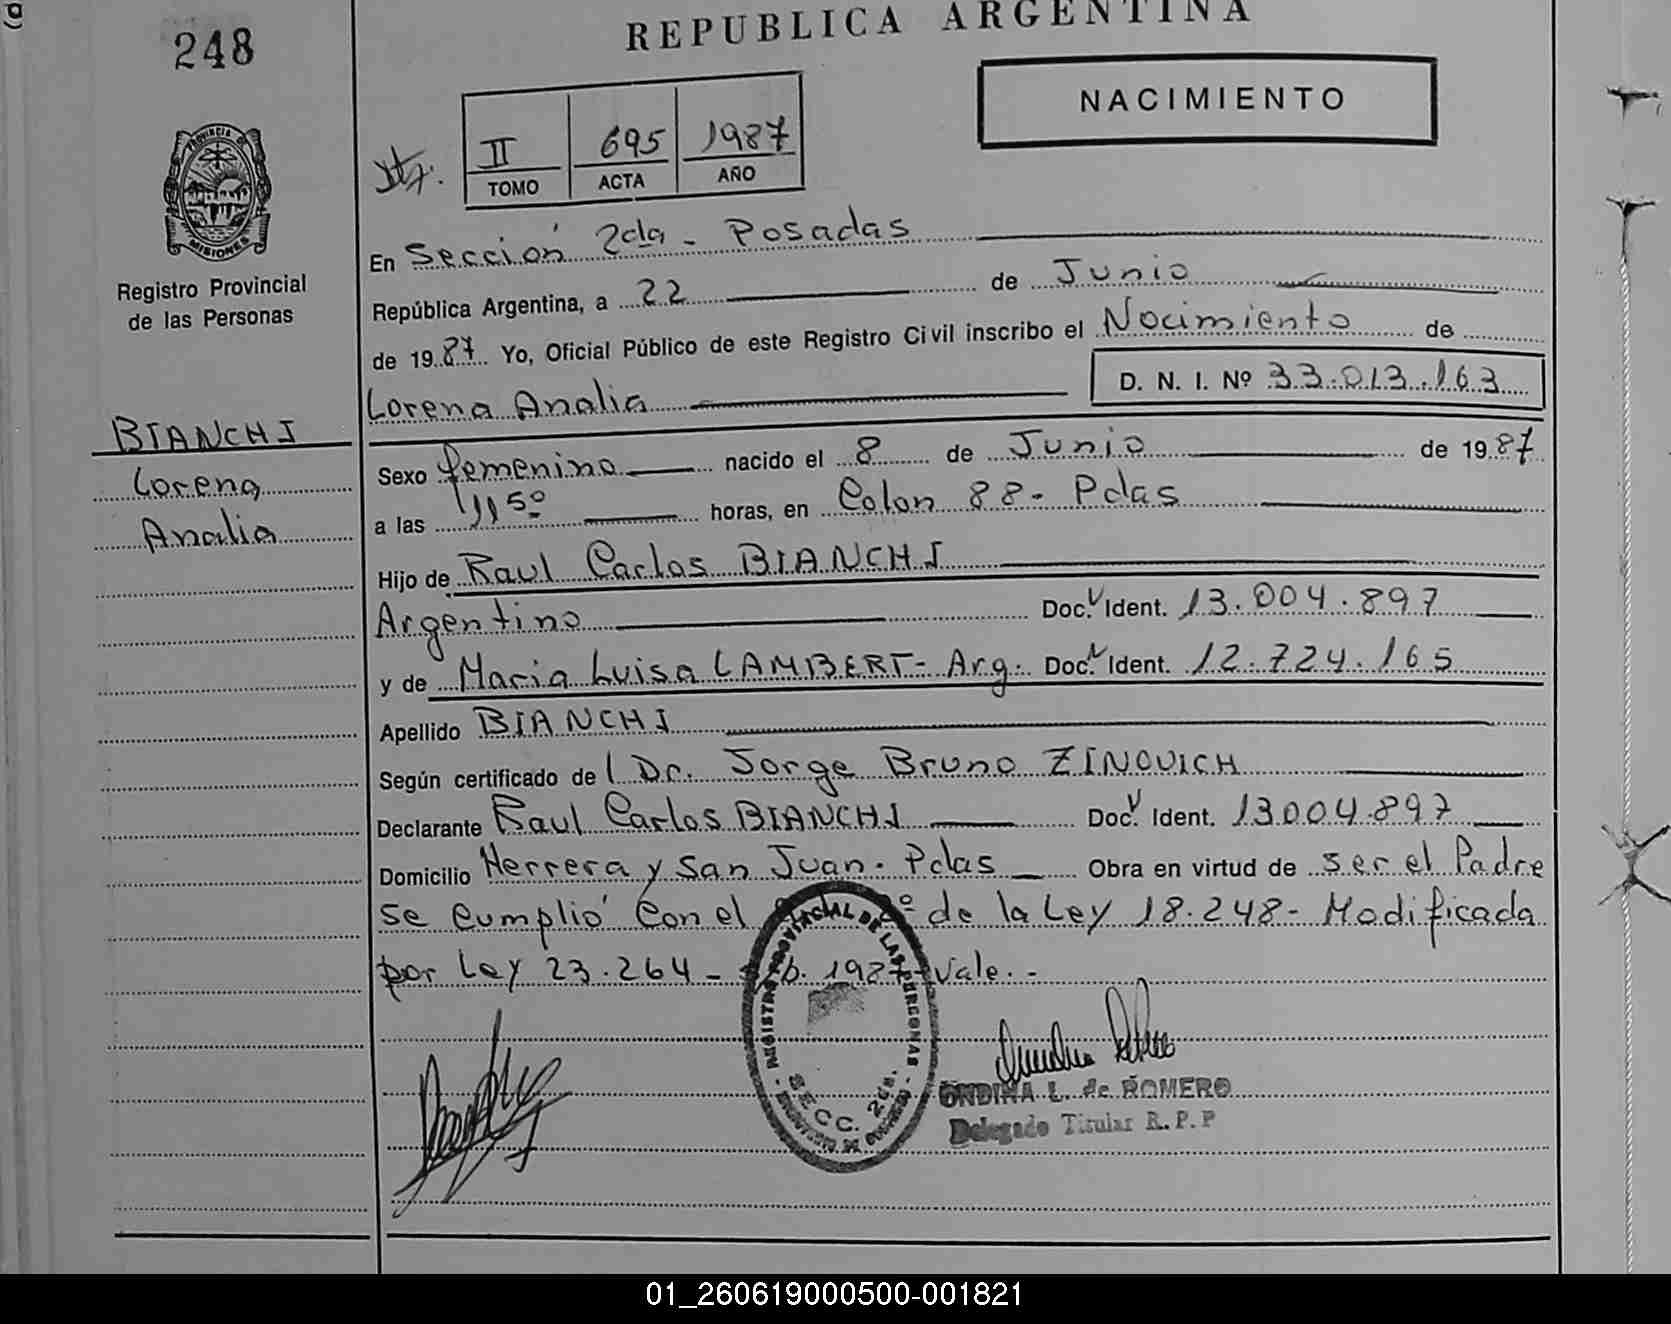 248
REPUBLICA ARGENTINA
NACIMIENTO
II 695 1987
TOMO ACTA AÑO
PROVINCIA DE MISIONES
Registro Provincial
de las Personas
En Sección 2da - Posadas
República Argentina, a 22 de Junio
de 1987 Yo, Oficial Público de este Registro Civil inscribo el Nacimiento de
Lorena Analia D. N. I. Nº 33.013.163
BIANCHI
Lorena
Analia
Sexo femenino nacido el 8 de Junio de 1987
a las horas, en Colon 88 - Pdas
Hijo de Raul Carlos BIANCHI
Argentino Doc. Ident. 13.004.897
y de Maria Luisa LAMBERT - Arg. Doc. Ident. 12.724.165
Apellido BIANCHI
Según certificado del Dr. Jorge Bruno ZINOVICH
Declarante Raul Carlos BIANCHI Doc. Ident. 13004.897
Domicilio Herrera y San Juan - Pdas Obra en virtud de ser el Padre
se cumplió con el de la Ley 18.248 - Modificada
por Ley 23.264 - 1987 - Vale. -
REGISTRO PROVINCIAL DE LAS PERSONAS
SECC. 2da.
ONDINA L. de ROMERO
Delegado Titular R. P. P
01_260619000500-001821